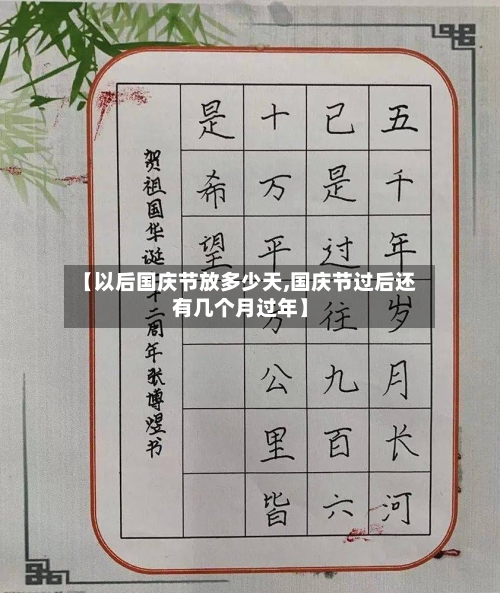 五千年岁月长河
已是过往九百六
十万平方公里皆
是希望
贺祖国华诞十二周年张博煜书
【以后国庆节放多少天,国庆节过后还
有几个月过年】